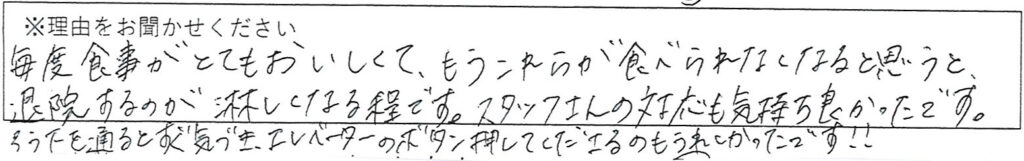 ※理由をお聞かせください
毎度食事がとてもおいしくて、もうこれらが食べられなくなると思うと、
退院するのが淋しくなる程です。スタッフさんの対応も気持ち良かったです。
ろうかを通るとすぐ気づき、エレベーターのボタン押してくださるのもうれしかったです!!